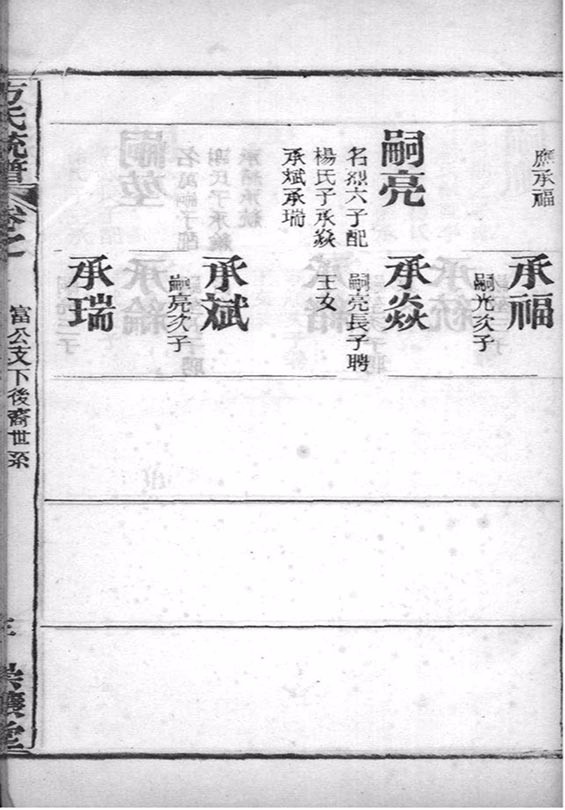 應承福
嗣亮
名烈六子配
楊氏子承焱
承斌承瑞
承福
嗣光次子
承焱
嗣亮長子聘
王女
承斌
嗣亮次子
承瑞
方氏統譜
當公支下後裔世系